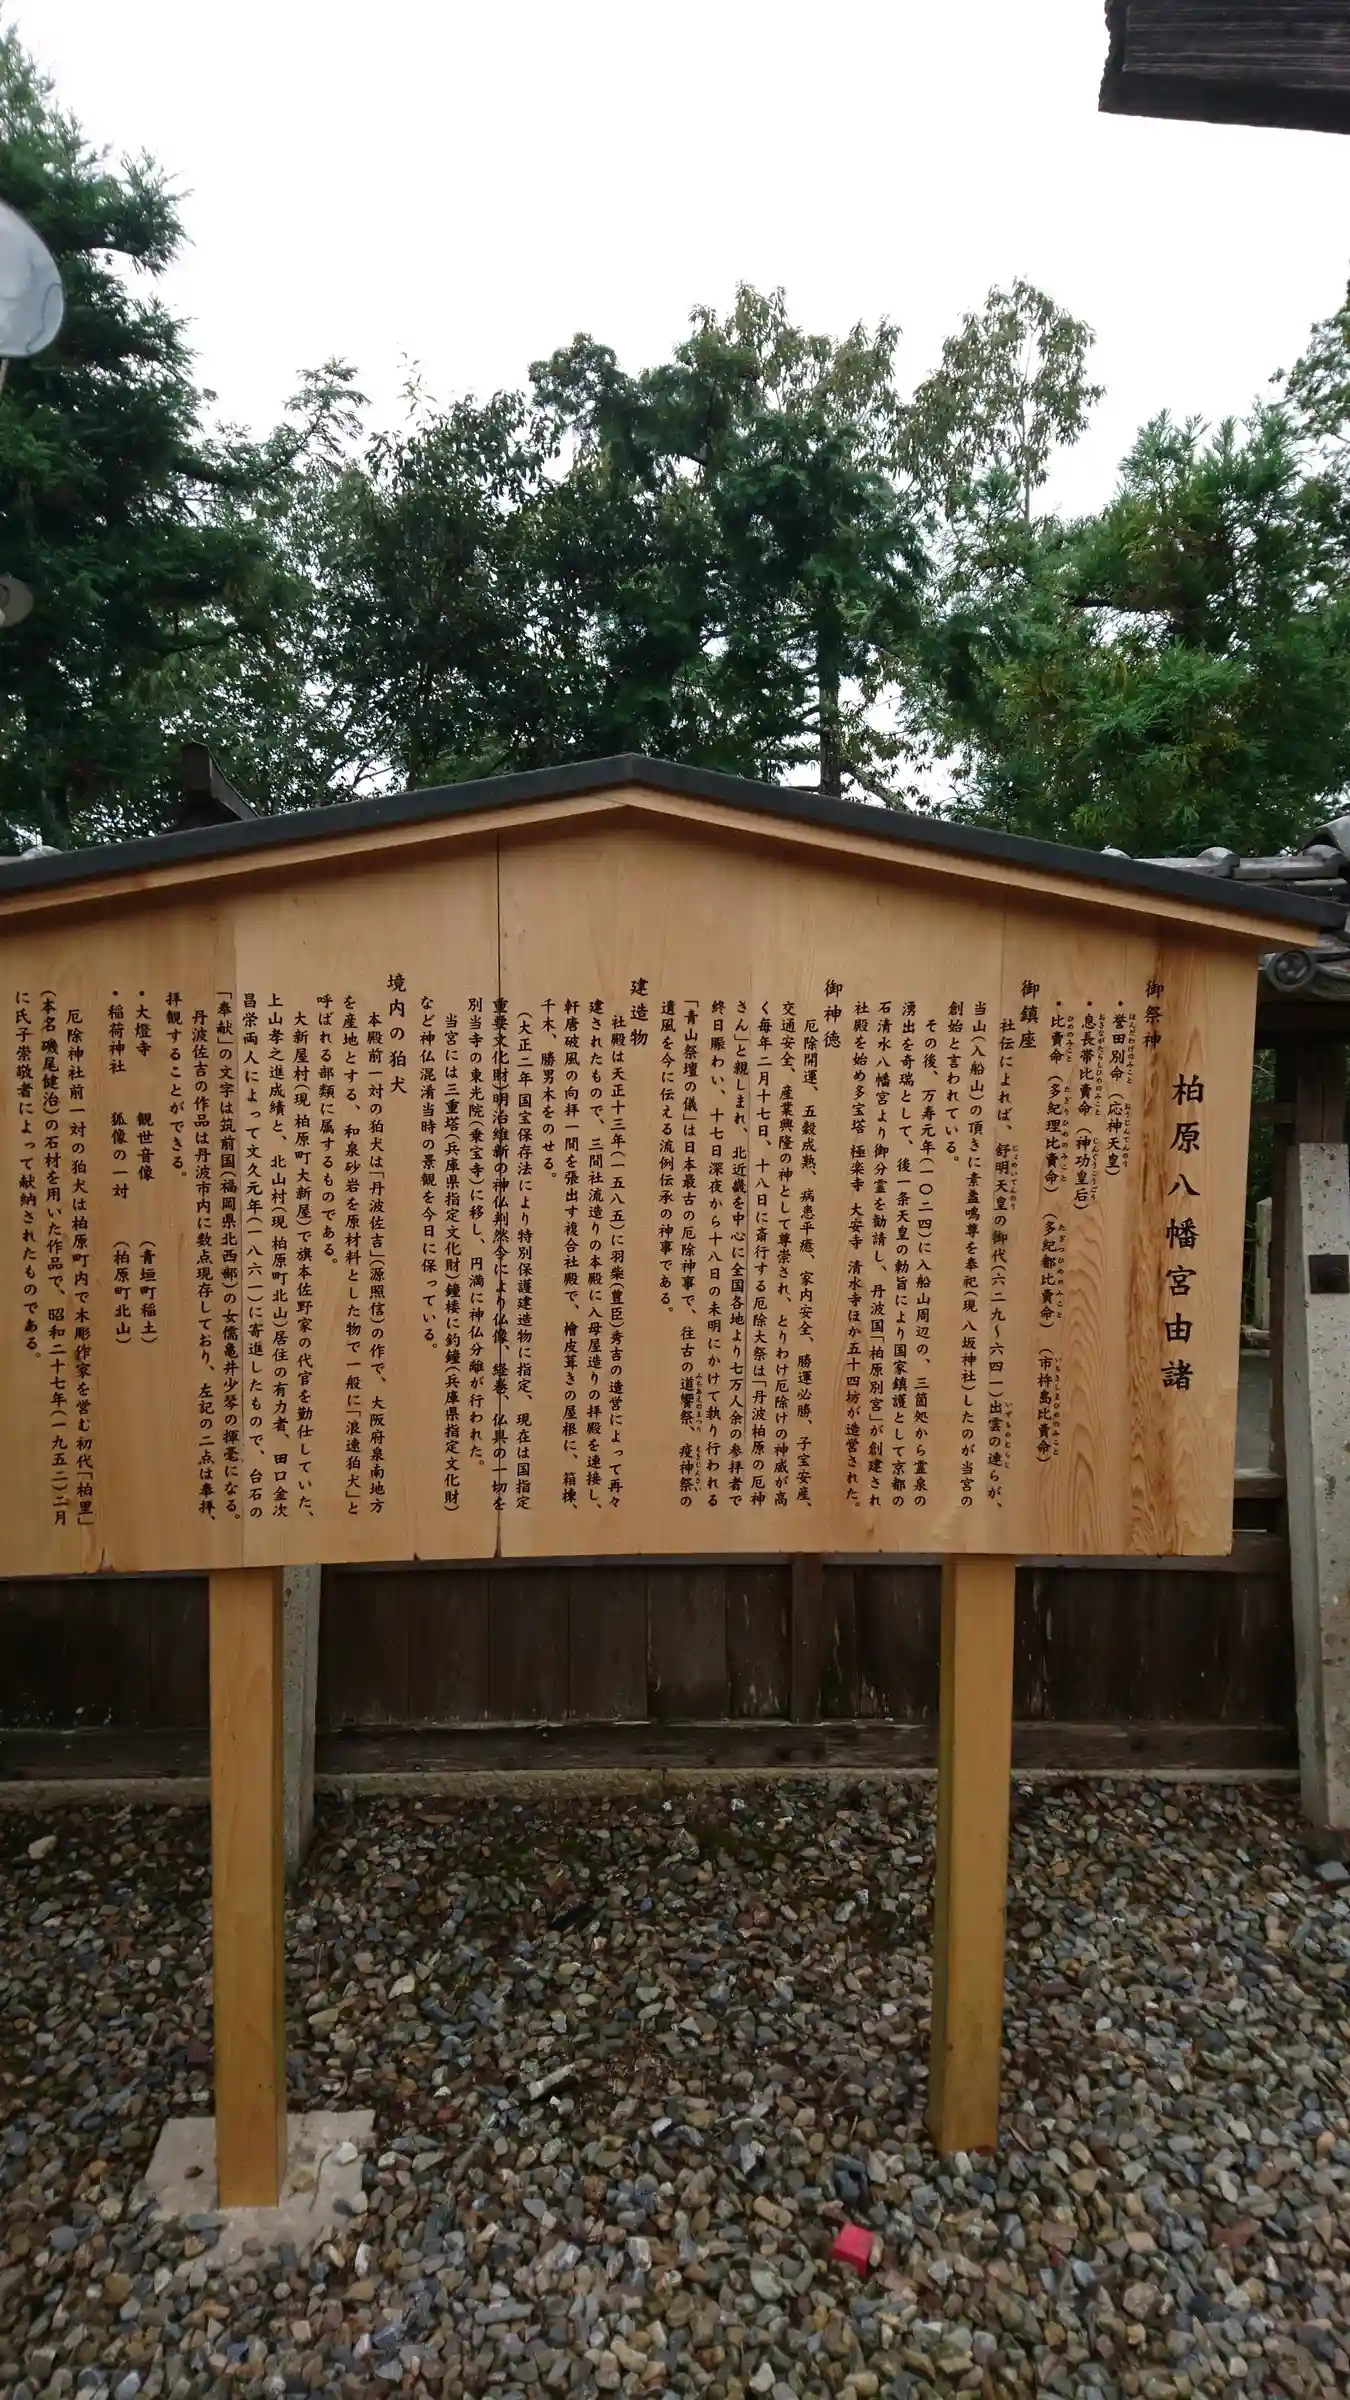 柏原八幡宮由諸
御祭神
・誉田別命（応神天皇）
・息長帯比賣命（神功皇后）
・比賣命（多紀理比賣命）（多紀都比賣命）（市杵島比賣命）
御鎮座
社伝によれば、舒明天皇の御代（六二九～六四一）出雲の連らが、
当山（入船山）の頂きに素盞鳴尊を奉祀（現八坂神社）したのが当宮の
創始と言われている。
その後、万寿元年（一〇二四）に入船山周辺の、三箇処から霊泉の
湧出を奇瑞として、後一条天皇の勅旨により国家鎮護として京都の
石清水八幡宮より御分霊を勧請し、丹波国「柏原別宮」が創建され
社殿を始め多宝塔 極楽寺 大安寺 清水寺ほか五十四坊が造営された。
御神徳
厄除開運、五穀成熟、病患平癒、家内安全、勝運必勝、子宝安産、
交通安全、産業興隆の神として尊崇され、とりわけ厄除けの神威が高
く毎年二月十七日、十八日に斎行する厄除大祭は「丹波柏原の厄神
さん」と親しまれ、北近畿を中心に全国各地より七万人余の参拝者で
終日賑わい、十七日深夜から十八日の未明にかけて執り行われる
「青山祭壇の儀」は日本最古の厄除神事で、往古の道饗祭、疫神祭の
遺風を今に伝える流例伝承の神事である。
建造物
社殿は天正十三年（一五八五）に羽柴（豊臣）秀吉の造営によって再々
建されたもので、三間社流造りの本殿に入母屋造りの拝殿を連接し、
軒唐破風の向拝一間を張出す複合社殿で、檜皮葺きの屋根に、箱棟、
千木、勝男木をのせる。
（大正二年国宝保存法により特別保護建造物に指定、現在は国指定
重要文化財）明治維新の神仏判然令により仏像、経巻、仏具の一切を
別当寺の東光院（乗宝寺）に移し、円満に神仏分離が行われた。
当宮には三重塔（兵庫県指定文化財）鐘楼に釣鐘（兵庫県指定文化財）
など神仏混淆当時の景観を今日に保っている。
境内の狛犬
本殿前一対の狛犬は「丹波佐吉」（源照信）の作で、大阪府泉南地方
を産地とする、和泉砂岩を原材料とした物で一般に「浪速狛犬」と
呼ばれる部類に属するものである。
大新屋村（現柏原町大新屋）で旗本佐野家の代官を勤仕していた、
上山孝之進成績と、北山村（現柏原町北山）居住の有力者、田口金次
昌栄両人によって文久元年（一八六一）に寄進したもので、台石の
「奉献」の文字は筑前国（福岡県北西部）の女儒亀井少琴の揮毫になる。
丹波佐吉の作品は丹波市内に数点現存しており、左記の二点は奉拝、
拝観することができる。
・大燈寺 観世音像 （青垣町稲土）
・稲荷神社 狐像の一対 （柏原町北山）
厄除神社前一対の狛犬は柏原町内で木彫作家を営む初代「柏里」
（本名磯尾健治）の石材を用いた作品で、昭和二十七年（一九五二）二月
に氏子崇敬者によって献納されたものである。